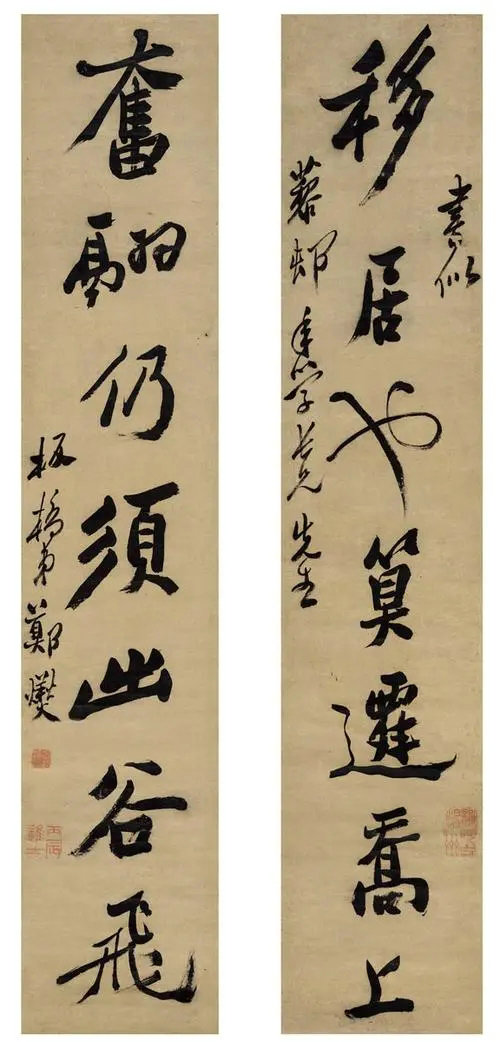 書似
移居也算遷喬上
邨年學長兄先生
奮翮仍須出谷飛
板橋弟鄭燮
丙辰進士